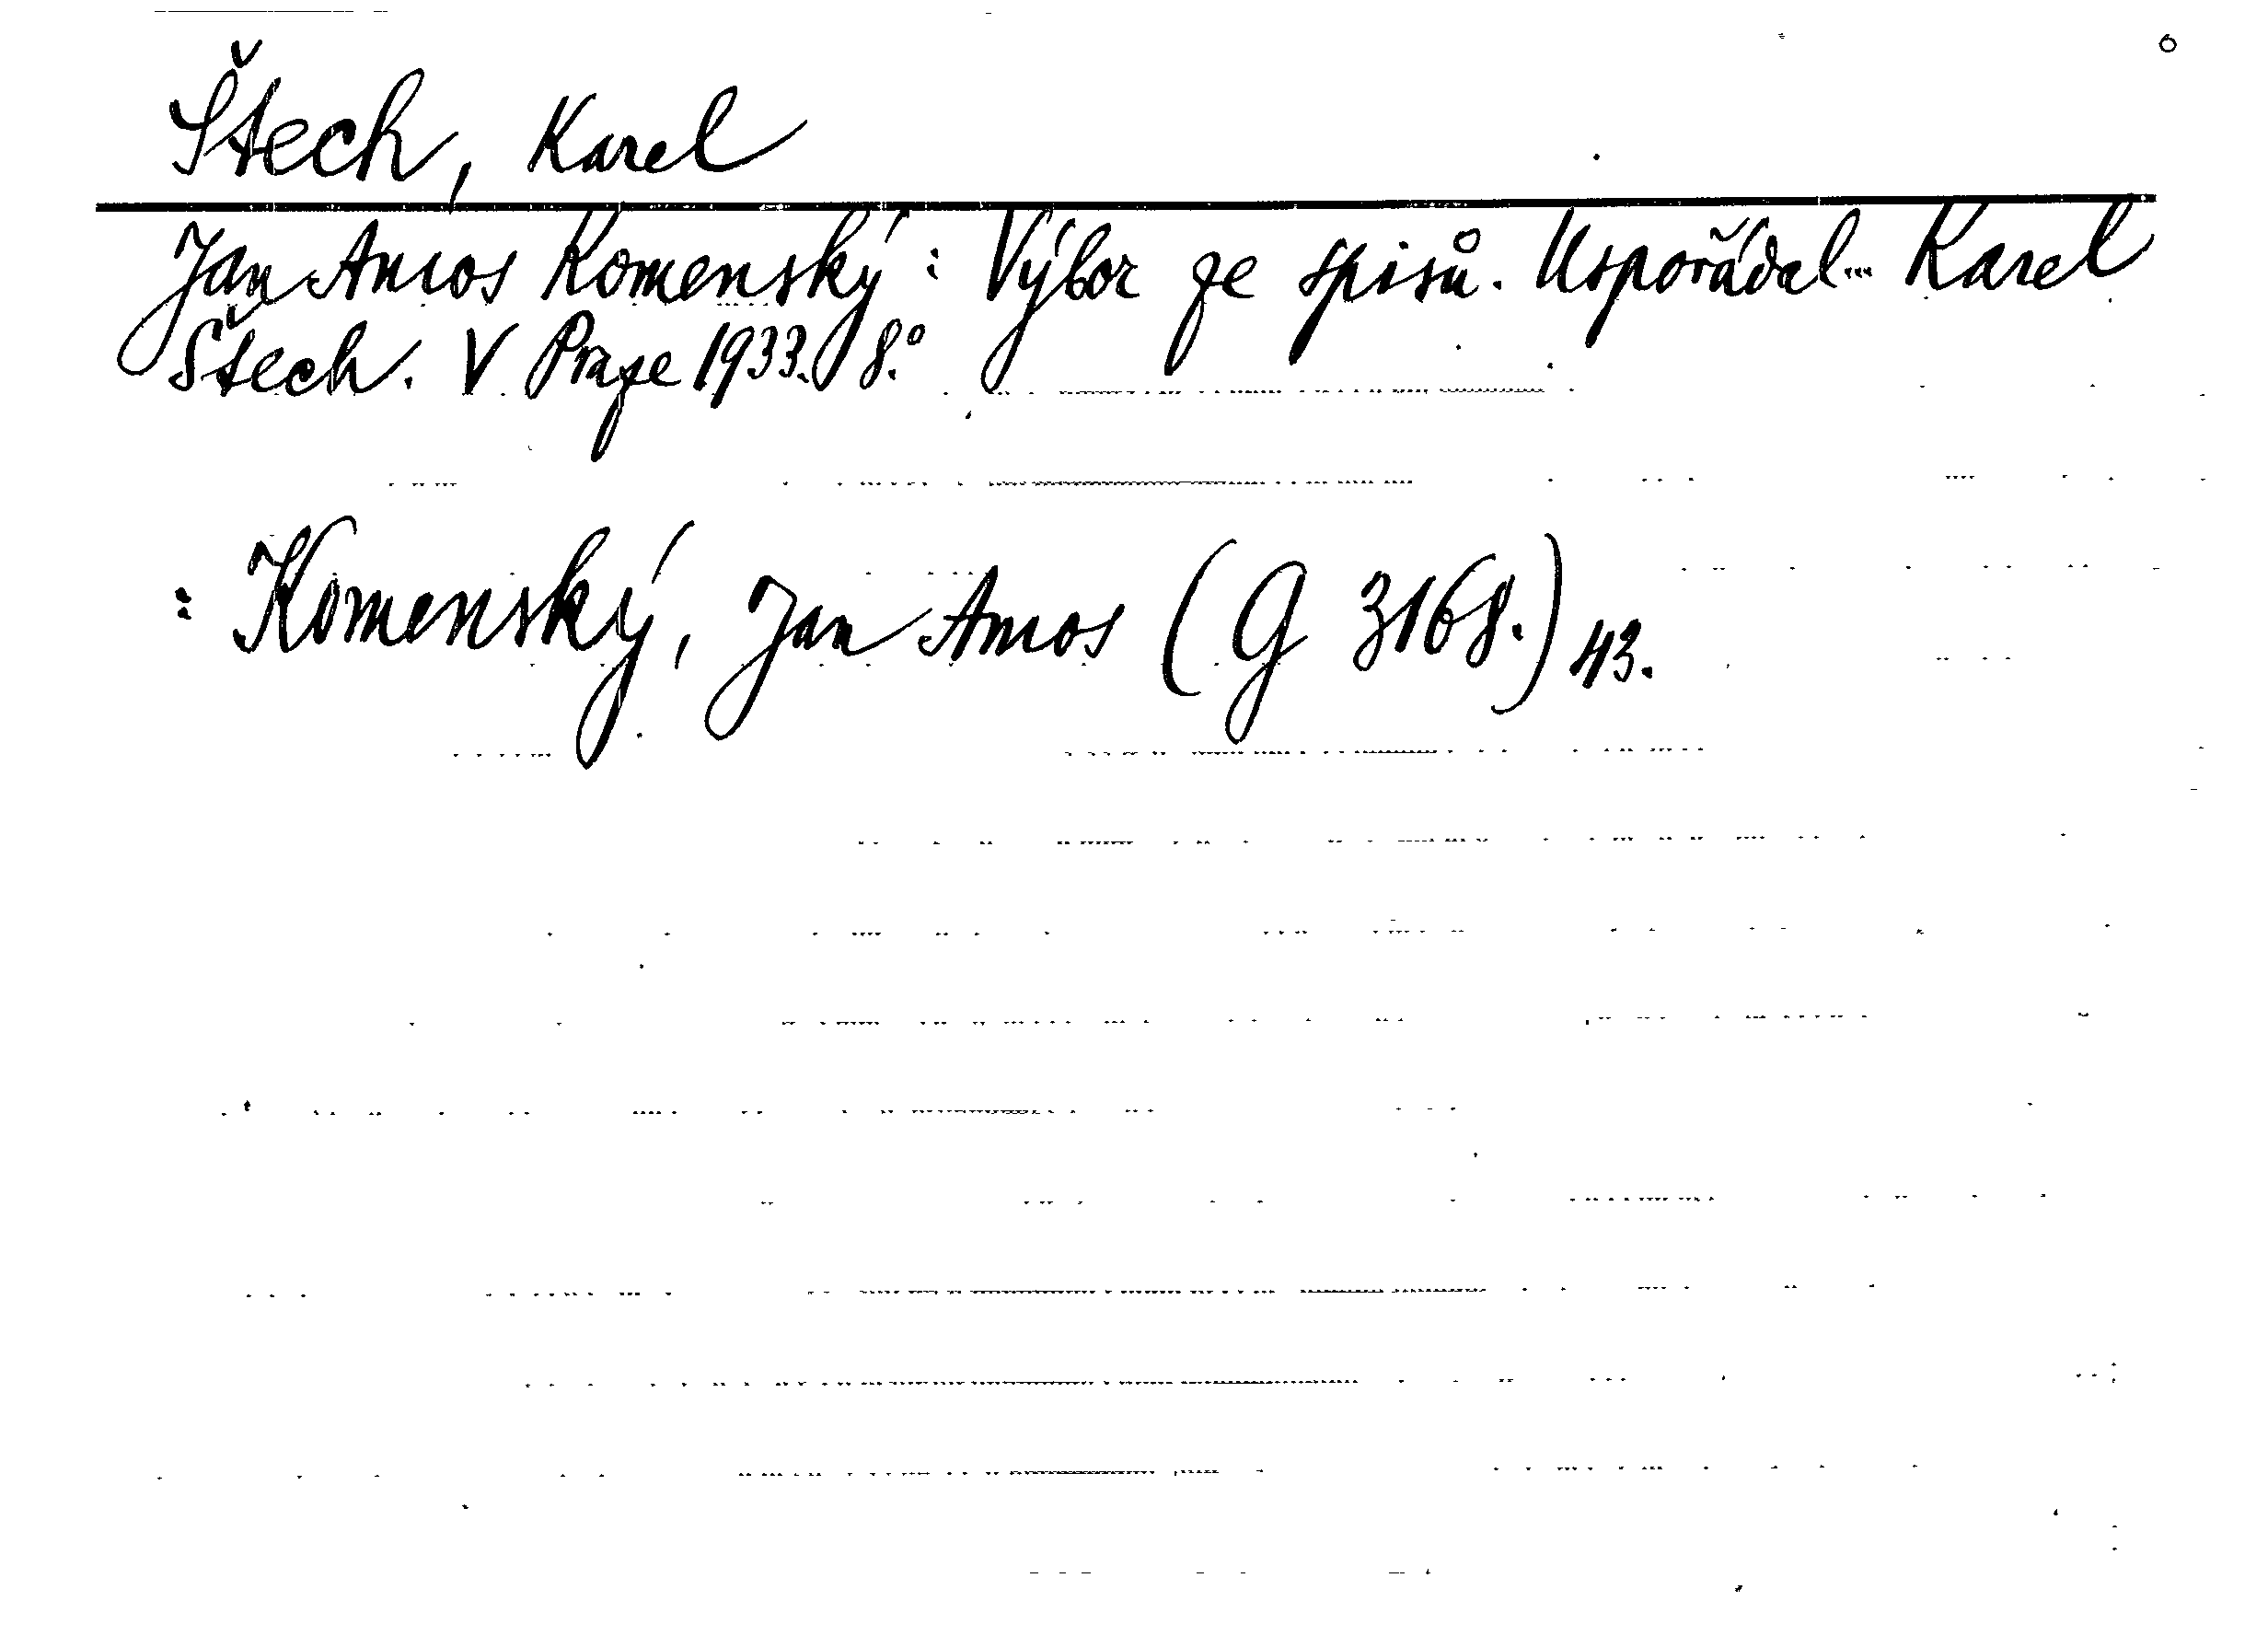 Štech, Karel
Jan Amos Komenský: Výbor ze spisů. Uspořádal... Karel
Štech. V Praze 1933. 8.°
: Komenský, Jan Amos (G 3168.) 43.